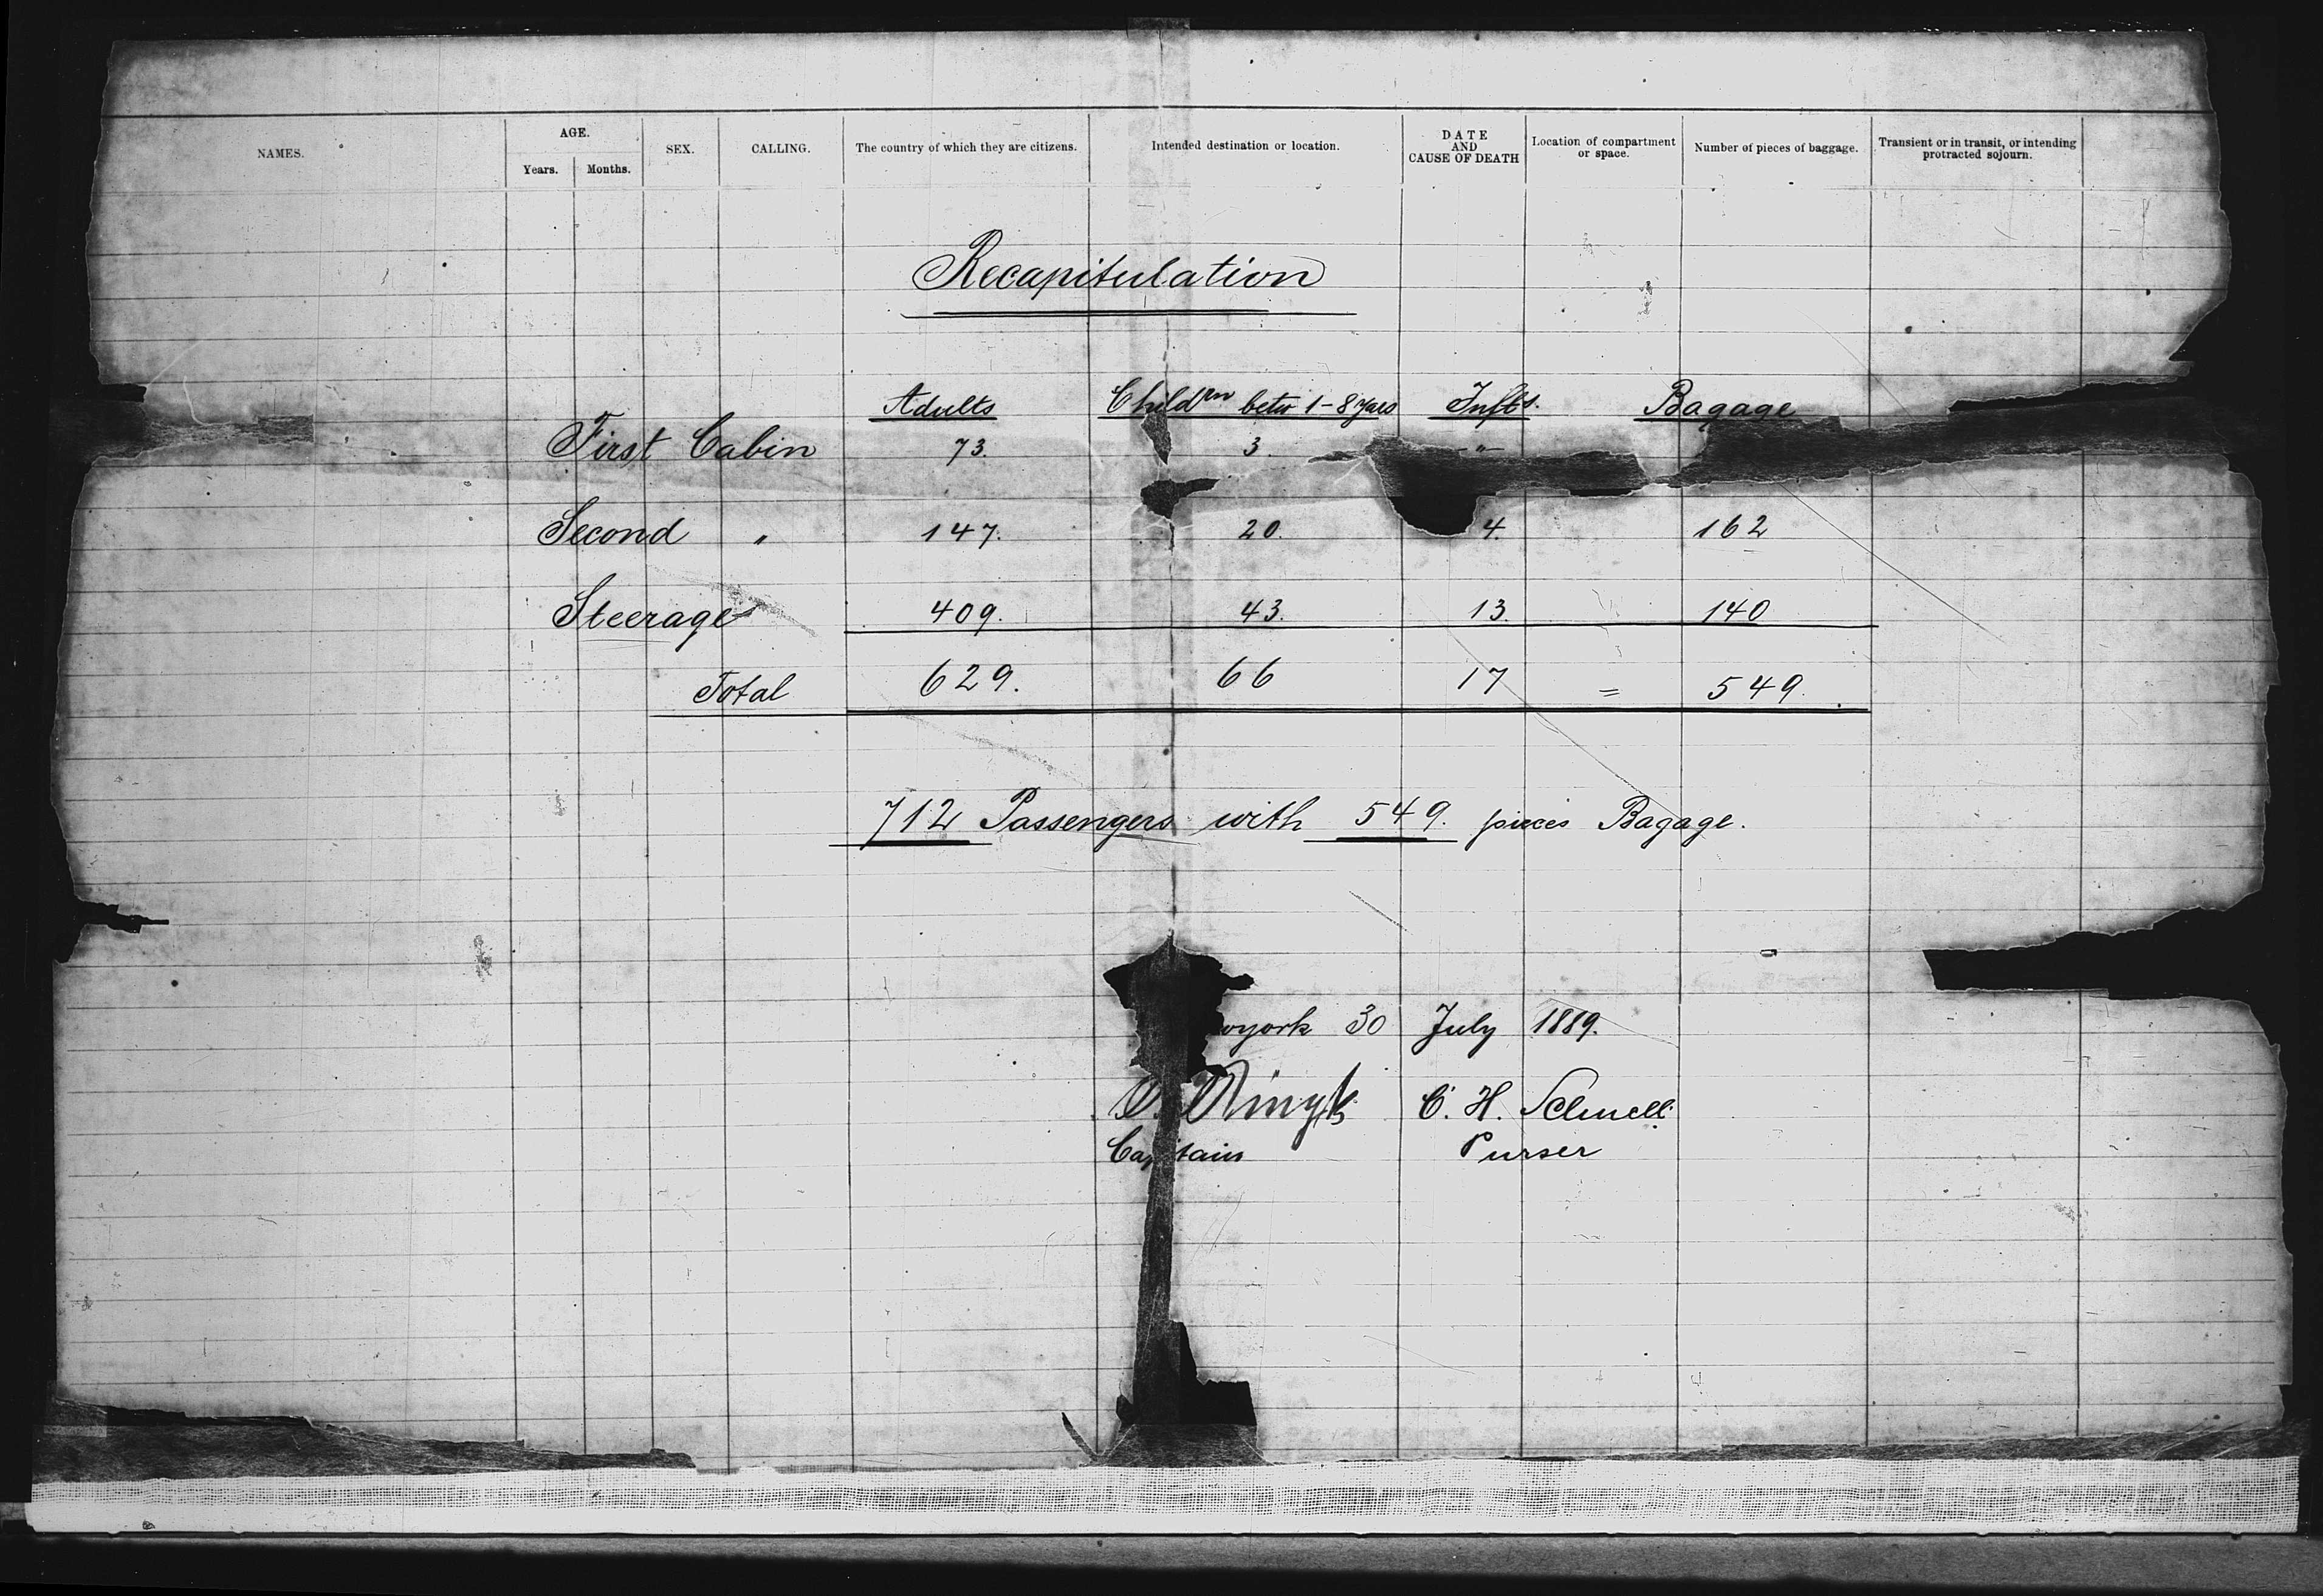 NAMES. AGE. SEX. CALLING. The country of which they are citizens. Intended destination or location. DATE AND CAUSE OF DEATH Location of compartment or space. Number of pieces of baggage. Transient or in transit, or intending protracted sojourn.
Years. Months.
Recapitulation
Adults Childrn betw 1-8 years Infts. Bagage
First Cabin 73. 3. -"-
Second " 147. 20. 4. 162
Steerage 409. 43. 13. 140
Total 629. 66 17 = 549.
712 Passengers with 549. pieces Bagage.
york 30 July 1889.
C. H.
Captain Purser